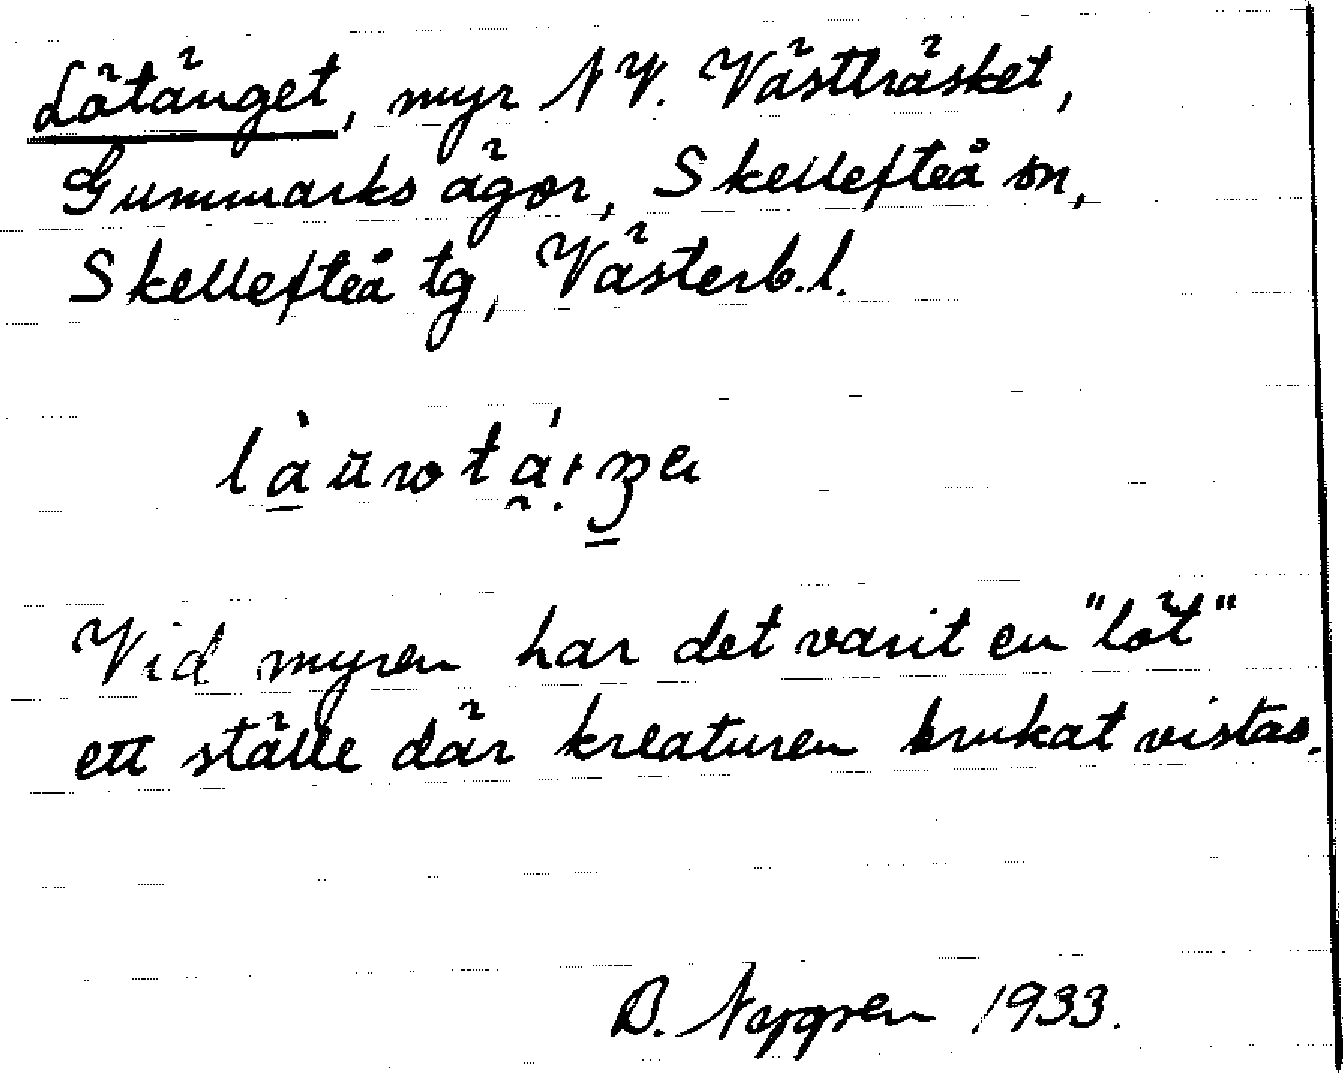 Lötänget, myr NV. Västträsket,
Gummarks ägor, Skellefteå sn,
Skellefteå tg, Västerb.l.
Vid myren har det varit en "löt"
ett ställe där kreaturen brukat vistas.
B. Nygren 1933.